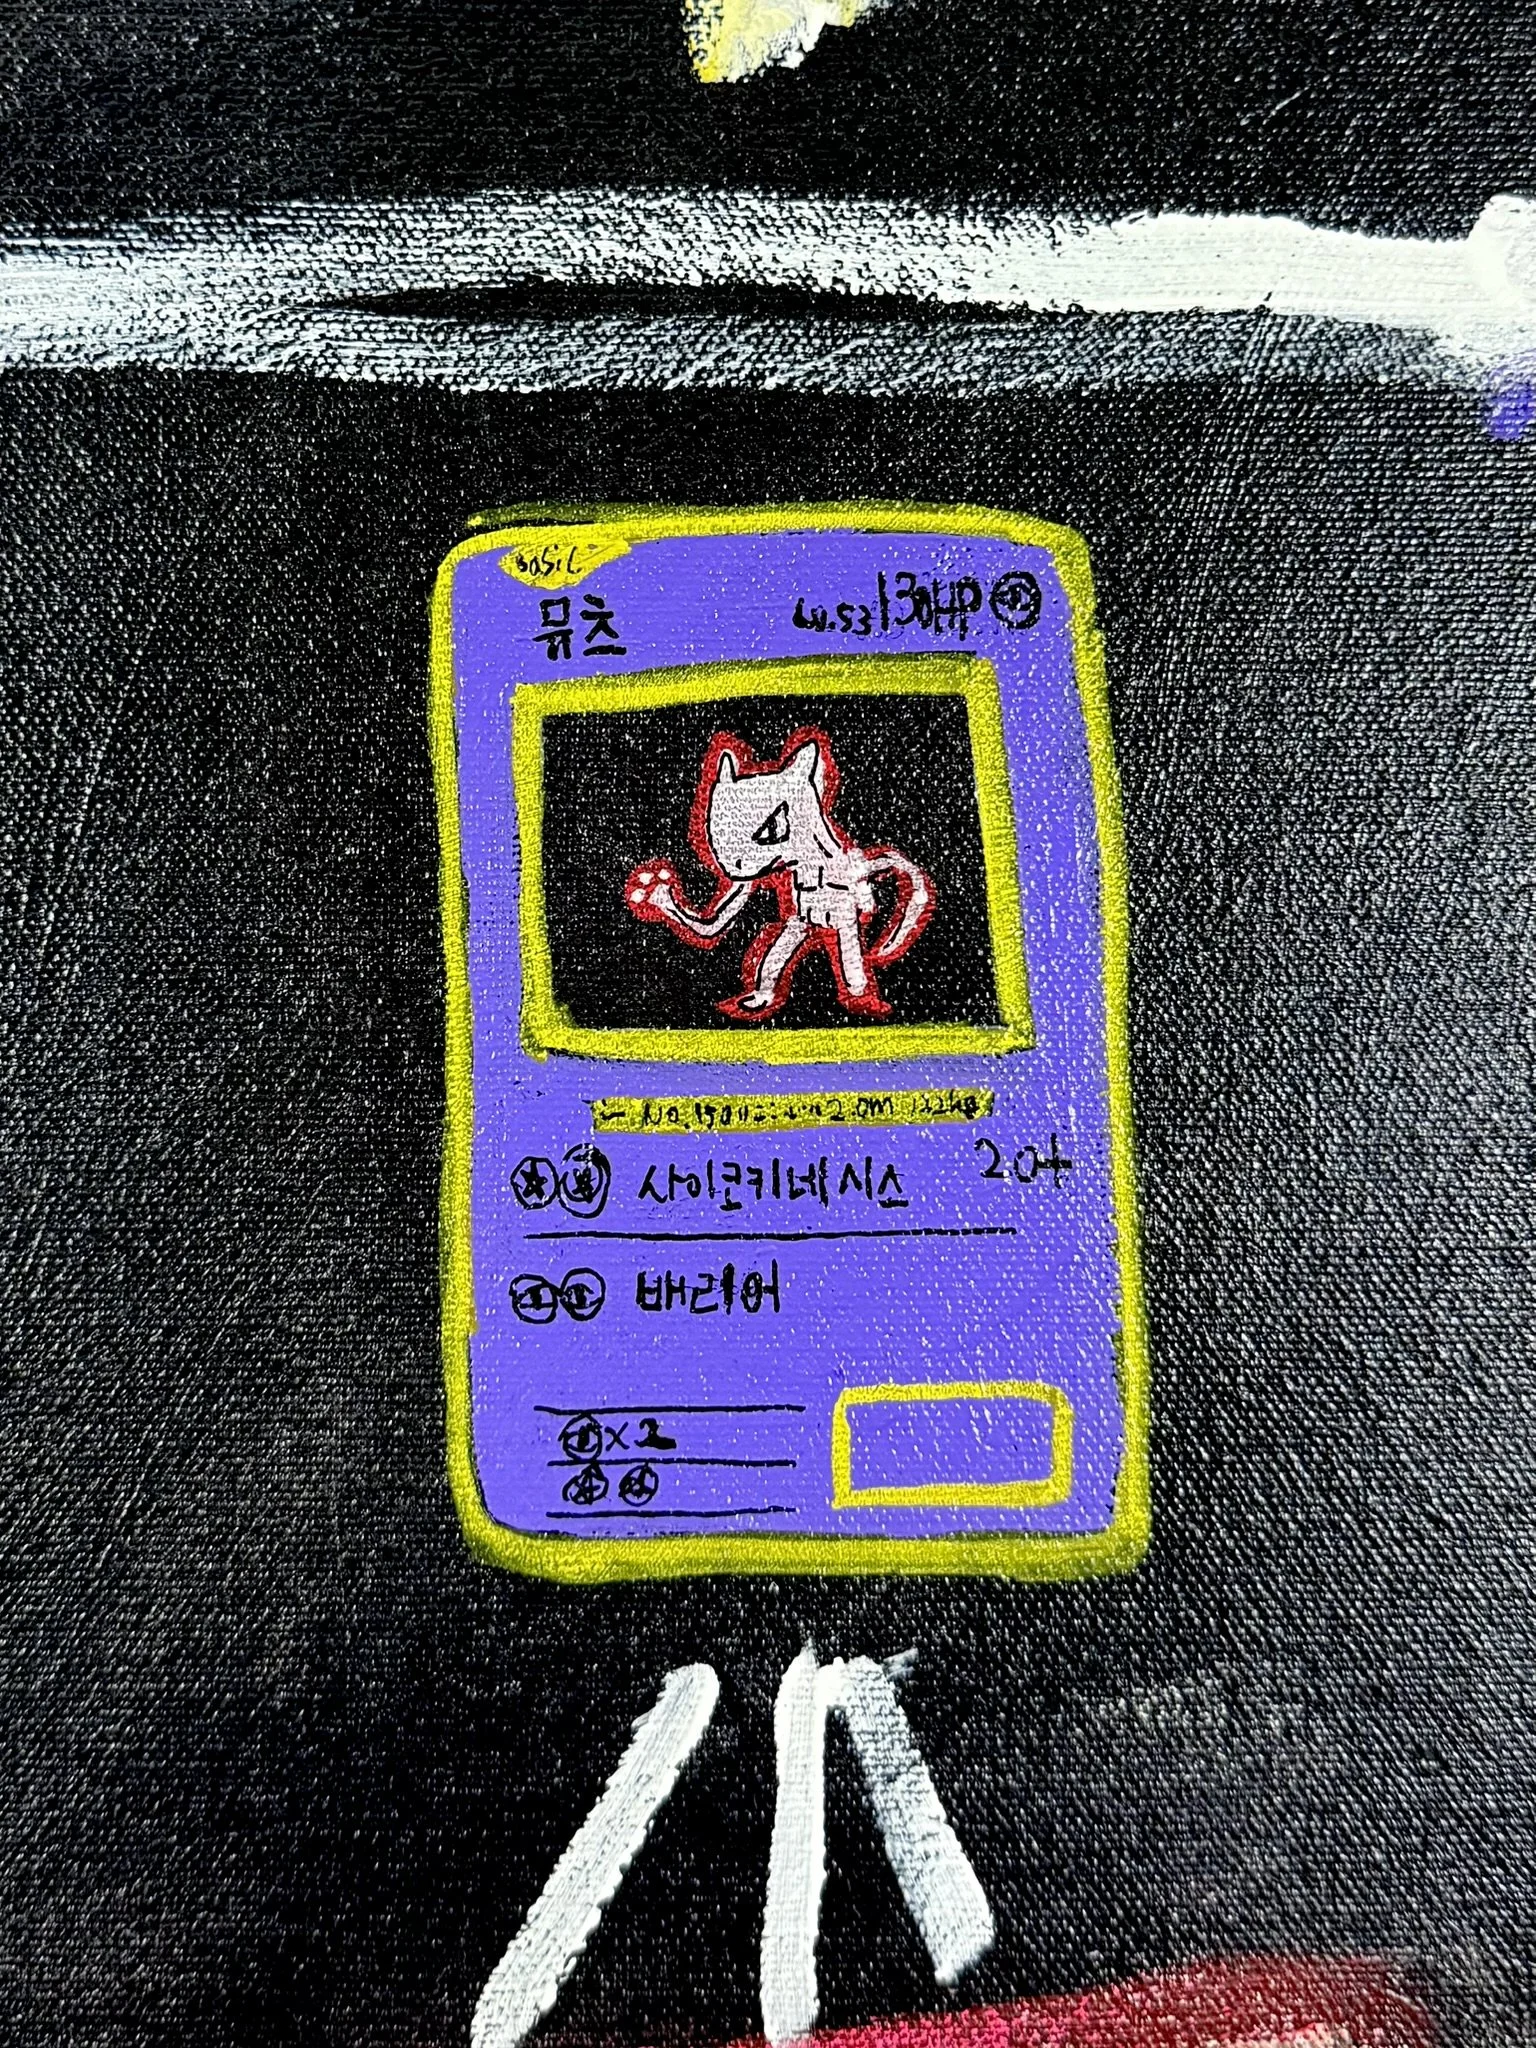 BASIC
뮤츠 Lv.53 130HP
No.150 2.0m 122kg
사이코키네시스 20+
배리어
x2